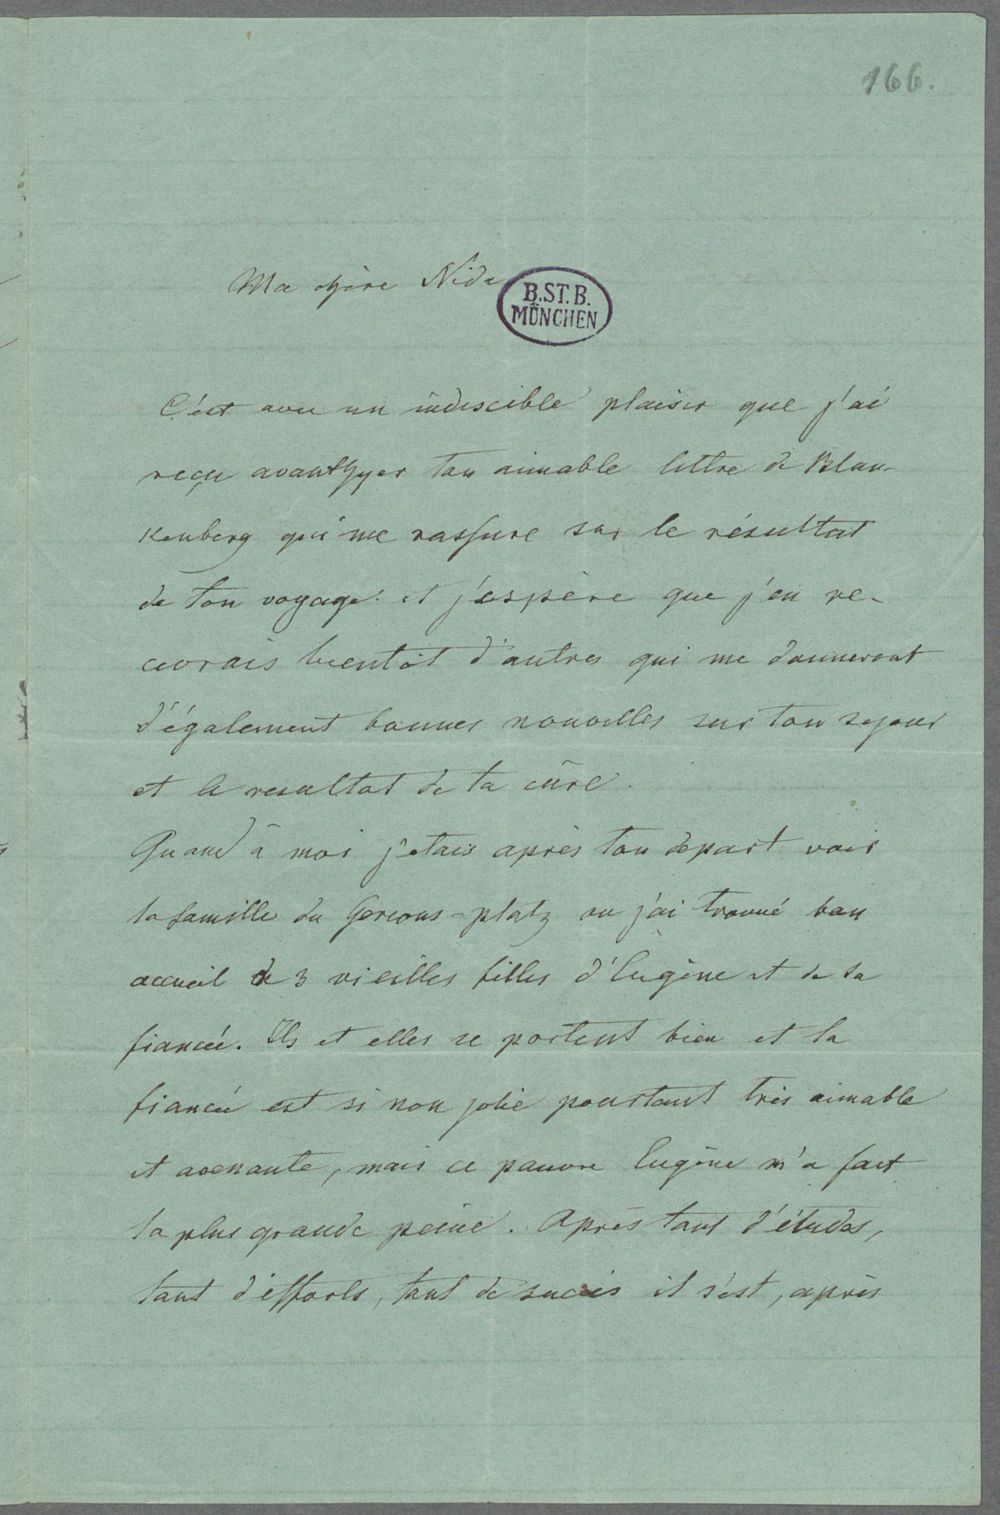 166.
Ma chère Nida
B.ST.B.
MÜNCHEN
C'est avec un indiscible plaisir que j'ai
reçu avanthyer ton aimable lettre de Blan-
kenberg qui me rassure sur le résultat
de ton voyage. et j'espère que j'en re-
cevrais bientôt d'autres qui me donneront
d'également bonnes nouvelles sur ton sejour
et le resultat de ta cûre.
Quand à moi j'etais après ton depart voir
la famille du Gereons-platz ou j'ai trouvé bon
accueil de 3 vieilles filles d'Eugène et de sa
fiancée. Ils et elles se portent bien et la
fiancée est si non jolie pourtant très aimable
et avenante, mais ce pauvre Eugène m'a fait
la plus grande peine. Après tant d'études,
tant d'efforts, tant de succès il s'est, après